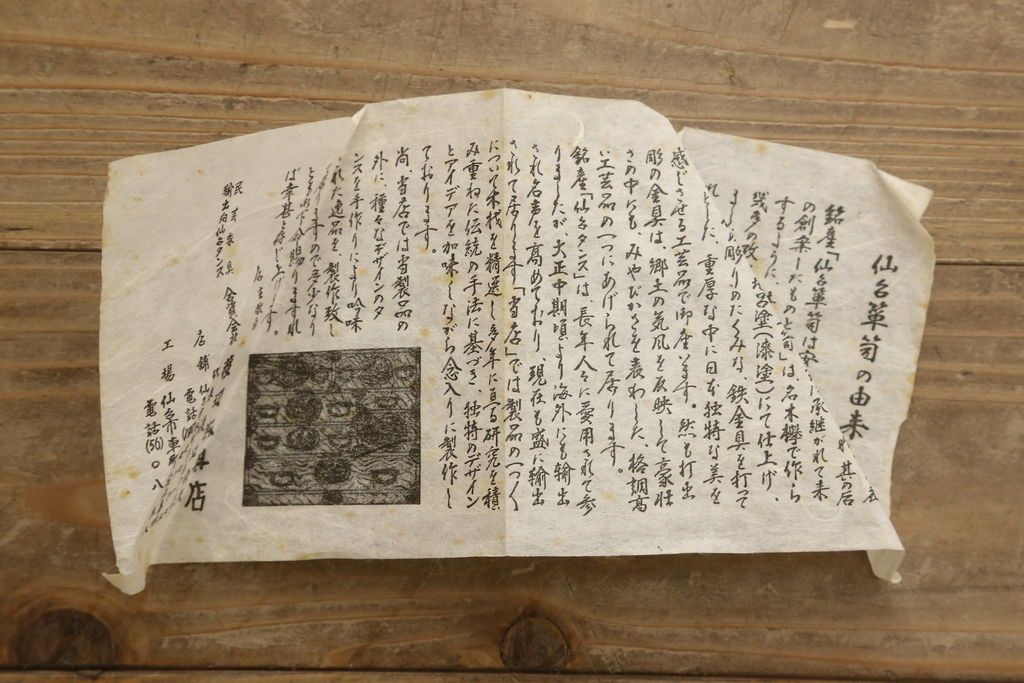 仙台簞笥の由来
銘産「仙台簞笥は
の創案したものと
するように、
幾多の改
れ 其の后
承継がれて来
笥」は、名木欅で作ら
れ呂塗(漆塗)にて仕上げ、
彫りのたくみな、鉄金具を打って
した、重厚な中に日本独特な美を
感じさせる工芸品で御座います。然も打出
彫の金具は、郷土の気風を反映して豪壮
さの中にも、みやびやかさを表わした、格調高
い工芸品の一つにあげられて居ります。
銘産「仙台タンス」は、長年人々に愛用されて参
りましたが、大正中期頃より海外にも輸出
され名声を高めており、現在も盛に輸出
されて居ります「当店」では製品の一つ一つ
について木栈を精選し多年に亘る研究を積
み重ねた伝統の手法に基づき、独特のデザイン
とアイデアを加味しながら念入りに製作し
ております。
尚、当店では当製品の
外に、種々なデザインのタ
ンスを手作りにより吟味
された逸品を、製作致し
ますので多少なり
下命賜りますれ
ば幸甚と存じ上げます。
店主敬白
民芸家具
輸出向仙台タンス
合資会社
具店
店舗 仙
電話
工場 仙台市東
電話(56)〇八